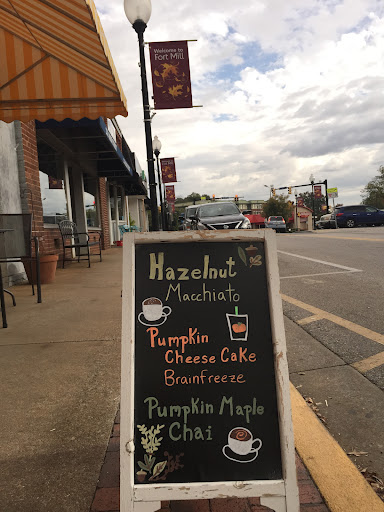 Welcome to
Fort Mill
Hazelnut
Macchiato
Pumpkin
Cheese Cake
Brainfreeze
Pumpkin Maple
Chai